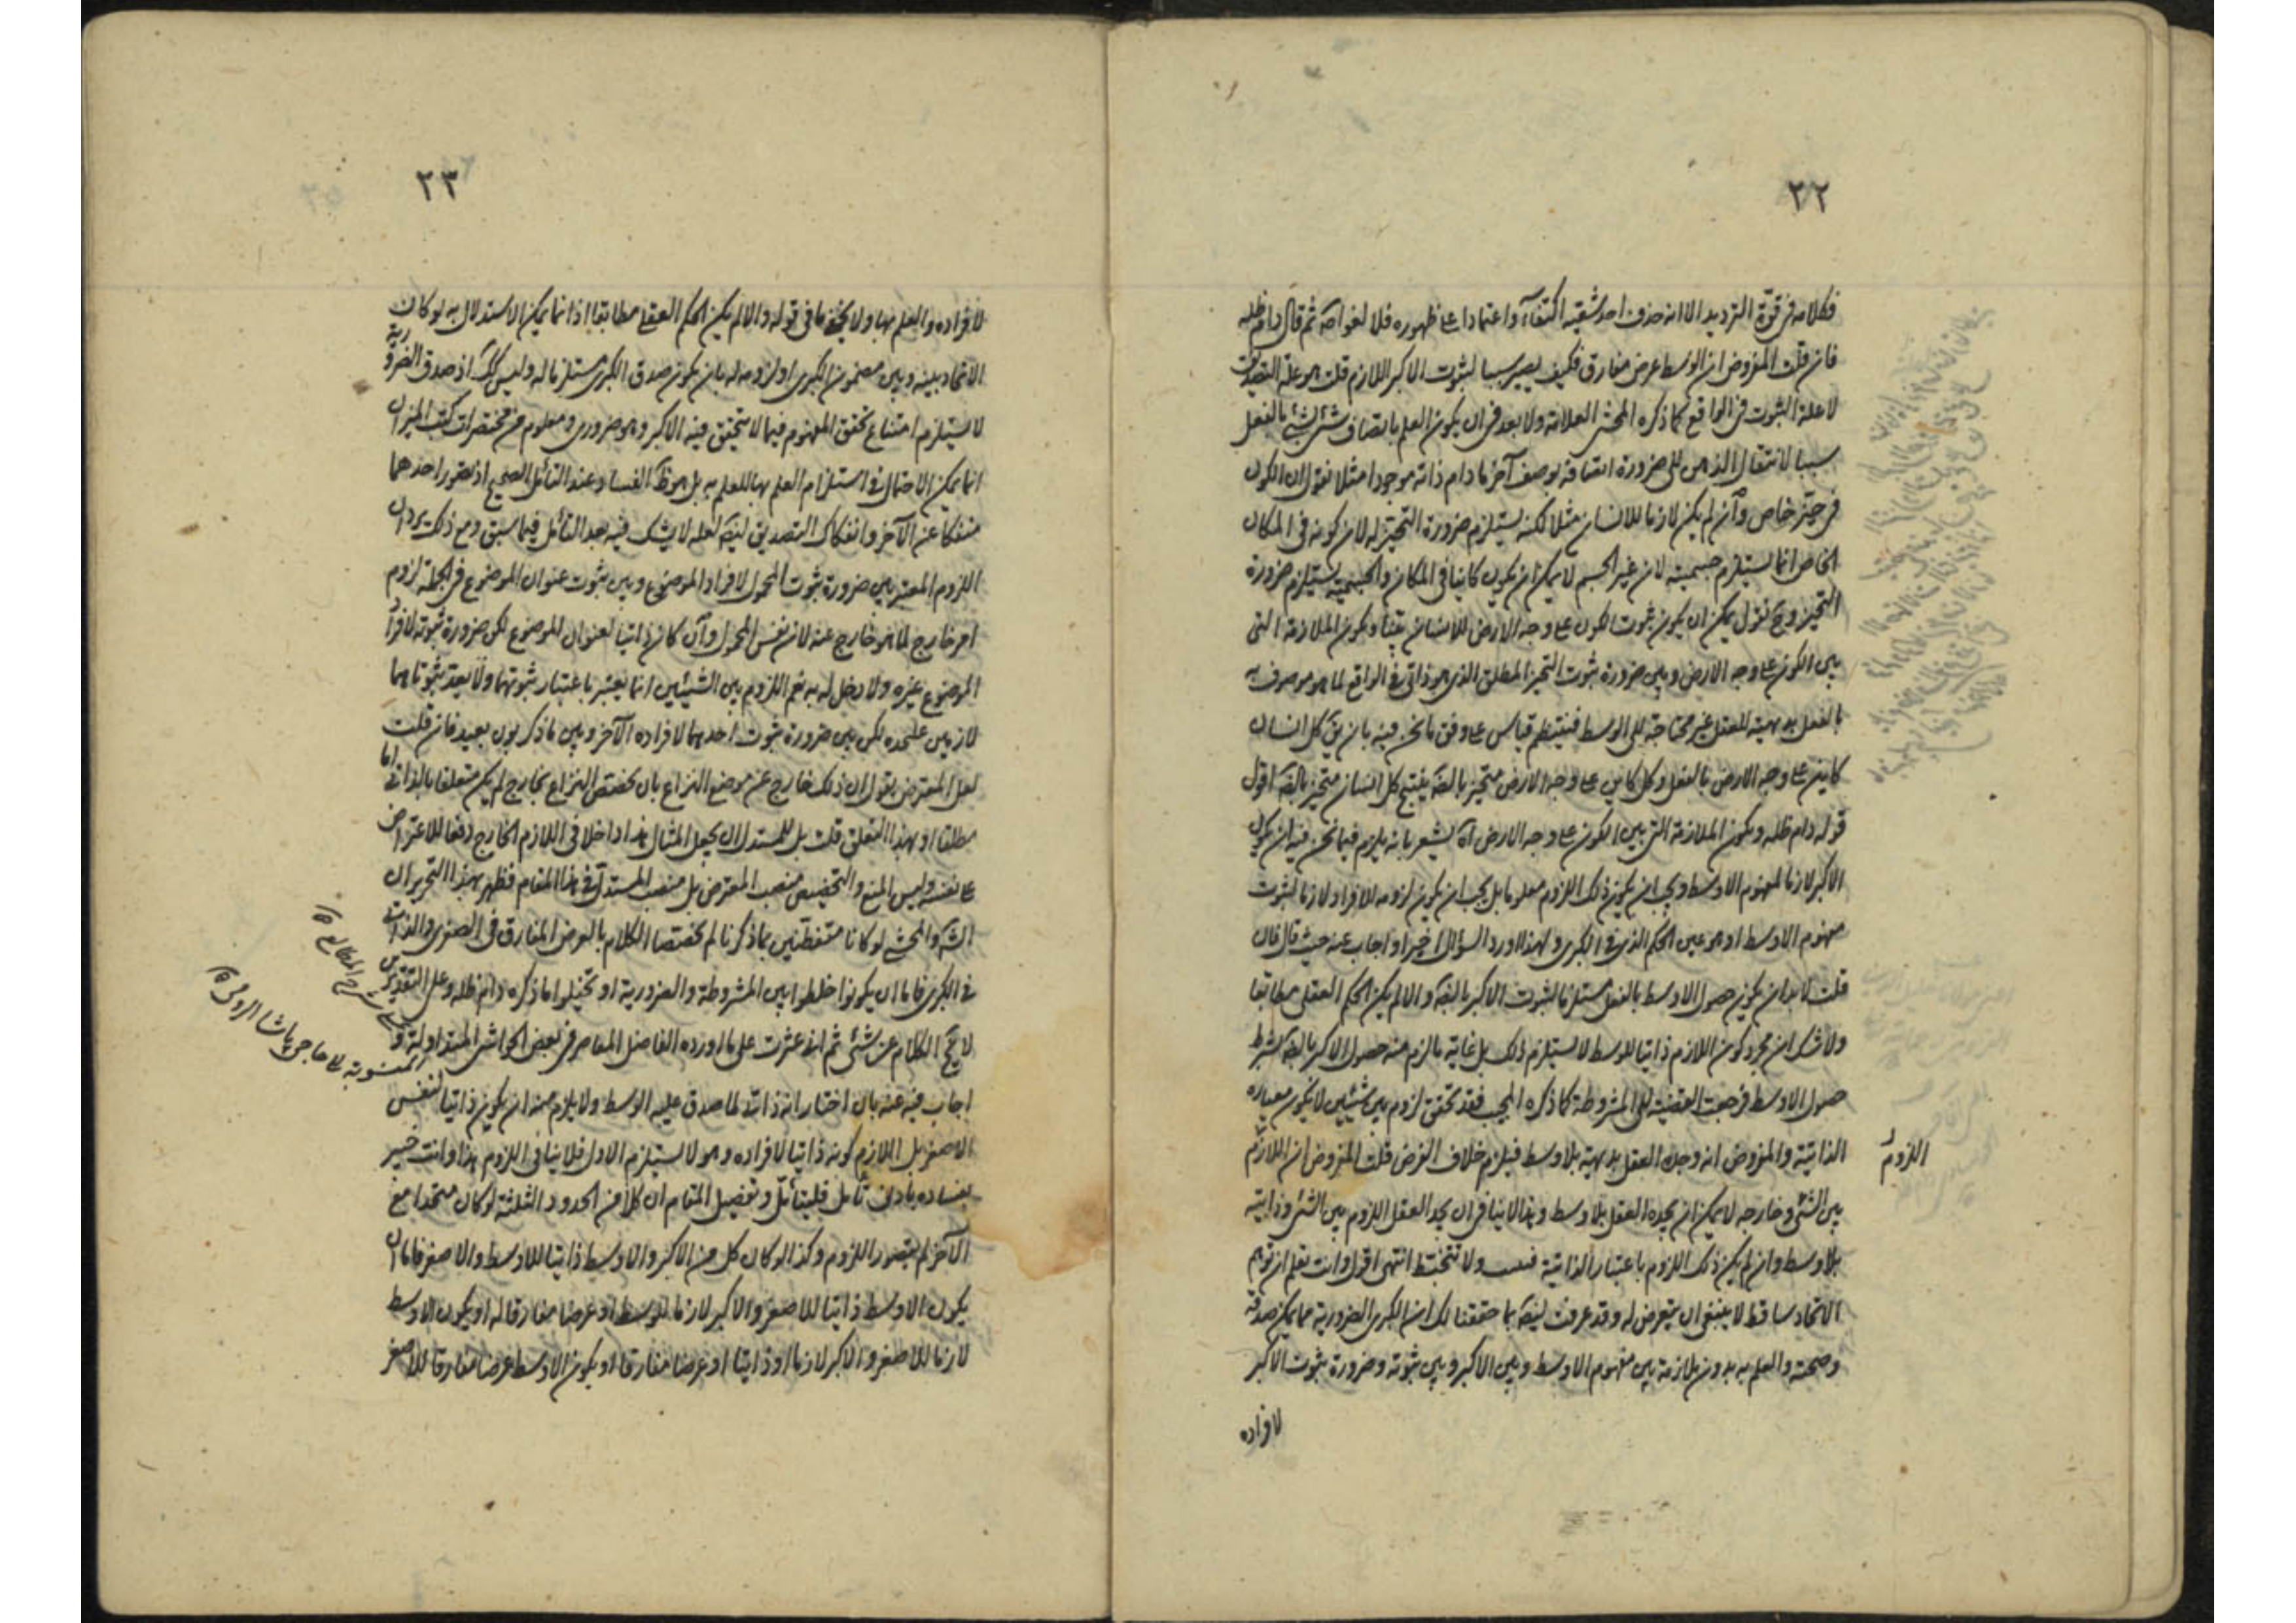 ٢٢
فكلامه في قوة الترديد الا انه حذف احد شقيه اكتفاء واعتمادا على ظهوره فلا لغو اصه ثم قال دام ظله
فان قلت المفروض ان الوسط عرض مفارق فكيف يصير سببا لثبوت الاكبر اللازم قلت هو علة التصديق
لا علة الثبوت في الواقع كما ذكره المحشي العلامة ولا بعد في ان يكون العلم باتصاف شيء بشيء بالفعل
سببا لانتقال الذهن الى ضرورة اتصافه بوصف آخر ما دام ذاته موجودا مثلا نقول ان الكون
في حيز خاص وان لم يكن لازما للانسان مثلا لكنه يستلزم ضرورة التحيز له لان كونه في المكان
الخاص انما يستلزم جسميته لان غير الجسم لا يمكن ان يكون كاينا في المكان والجسمية يستلزم ضرورة
التحيز وح نقول يمكن ان يكون ثبوت الكون على وجه الارض للانسان بينا ويكون الملازمة التي
بين الكون على وجه الارض وبين ضرورة ثبوت التحيز المطلق الذي هو ذاتي في الواقع لما هو موصوف به
بالفعل بديهية للعقل غير محتاجة الى الوسط فينتظم قياس على وفق ما نحن فيه بان يق كل انسان
كاين على وجه الارض بالفعل وكل كاين على وجه الارض متحيز بالضه ينتج كل انسان متحيز بالضه اقول
قوله دام ظله ويكون الملازمة التي بين الكون على وجه الارض آه يشعر بانه يلزم فيما نحن فيه ان يكون
الاكبر لازما لمفهوم الاوسط ويجب ان يكون ذلك اللزوم معلوما بل يجب ان يكون لزومه للافراد لازما لثبوت
مفهوم الاوسط او هو عين الحكم الذي في الكبرى ولهذا اورد السؤال اخيرا واجاب عنه حيث قال فان
قلت لا بد ان يكون حصول الاوسط بالفعل مستلزما لثبوت الاكبر بالضه والا لم يكن الحكم العقلي مطابقا
ولا شك ان مجرد كون اللازم ذاتيا للوسط لا يستلزم ذلك بل غاية ما لزم منه حصول الاكبر بالضه بشرط
حصول الاوسط فرجعت القضية الى المشروطة كما ذكره المجيب فقد تحقق لزوم بين شيئين لا يكون معياره
الذاتية والمفروض انه وجده العقل بديهية بلا وسط فيلزم خلاف الفرض قلت المفروض ان اللازم
اللزوم
بين الشيء وخارجه لا يمكن ان يجده العقل بلا وسط وهذا لا ينافي ان يجد العقل اللزوم بين الشيء وذاتيه
بلا وسط وان لم يكن ذلك اللزوم باعتبار الذاتية فـ ولا تتخبط انتهى اقول وانت تعلم ان توهم
الاتحاد ساقط لا ينبغي ان يتعرض له وقد عرفت ايضه بما حققنا لك ان الكبرى الضرورية مما يمكن صدقه
وصحته والعلم به بدون ملازمة بين مفهوم الاوسط وبين الاكبر وبين ثبوته وضرورة ثبوت الاكبر
لافراده
٢٣
لافراده والعلم بها ولا يخفى ما في قوله والا لم يكن الحكم العقلي مطابقا اذ انما يمكن الاستدلال به لو كان
الاتحاد بينه وبين مضمون الكبرى او لزومه له بان يكون صدق الكبرى مستلزما له وليس كك اذ صدق الضرورية
لا يستلزم امتناع تحقق المفهوم فيما لا يتحقق فيه الاكبر وهو ضروري ومعلوم من مختصرات كتب الميزان
انما يمكن الاحتمال في استلزام العلم بها للعلم به بل هو ظ الفساد عند التأمل الصحيح اذ تصور احدهما
منفكا عن الآخر وانفكاك التصديق ايضه لعله لا يشك فيه بعد التأمل فيما سبق ومع ذلك يرد ان
اللزوم المعتبر بين ضرورة ثبوت المحمول لافراد الموضوع وبين ثبوت عنوان الموضوع في الجملة لزوم
امر خارج لما هو خارج عنه لان نفس المحمول وان كان ذاتيا لعنوان الموضوع لكن ضرورة ثبوته لافراد
الموضوع غيره ولا دخل له به نعم اللزوم بين الشيئين انما يعتبر باعتبار ثبوتهما ولا يعد ثبوتاهما
لازمين عليحده لكن بين ضرورة ثبوت احدهما لافراده الآخر وبين ما ذكر بون بعيد فان قلت
لعل المعترض يقول ان ذلك خارج عن موضع النزاع بان يختص النزاع بخارج لم يكن متعلقا بالذاتي اما
مطلقا او بهذا التعلق قلت بل للمستدل ان يجعل المثال هذا داخلا في اللازم الخارج دفعا للاعتراض
عن نفسه وليس المنع والتخصيص منصب المعترض بل منصب المستدل في هذا المقام فظهر بهذا التحرير ان
الشه والمحشي لو كانا متفطنين بما ذكرنا لم يختصا الكلام بالعرض المفارق في الصغرى والذاتي
في الكبرى فاما ان يكونوا خلطوا بين المشروطة والضرورية او تخيلوا ما ذكره دام ظله وعلى التقديرين
لا يخ الكلام عن شيء ثم اني عثرت على ما اورده الفاضل المعاصر في بعض الحواشي المتداولة و
على شرح المطالع
المنسوبة لا حاجي پاشا الرومي
اجاب فيه عنه بان اختار انه ذاتي لما صدق عليه الوسط ولا يلزم منه ان يكون ذاتيا لنفس
الاصغر بل اللازم كونه ذاتيا لافراده وهو لا يستلزم الاول فلا ينافي اللزوم هذا وانت خبير
بفساده بادنى تأمل فليتأمل وتفصيل المقام ان كلا من الحدود الثلثة لو كان متحدا مع
الآخر لم يتصور اللزوم وكذا لو كان كل من الاكبر والاوسط ذاتيا للاوسط والاصغر فاما ان
يكون الاوسط ذاتيا للاصغر والاكبر لازما للوسط او عرضا مفارقا له او يكون الاوسط
لازما للاصغر والاكبر لازما او ذاتيا او عرضا مفارقا او يكون الاوسط عرضا مفارقا للاصغر